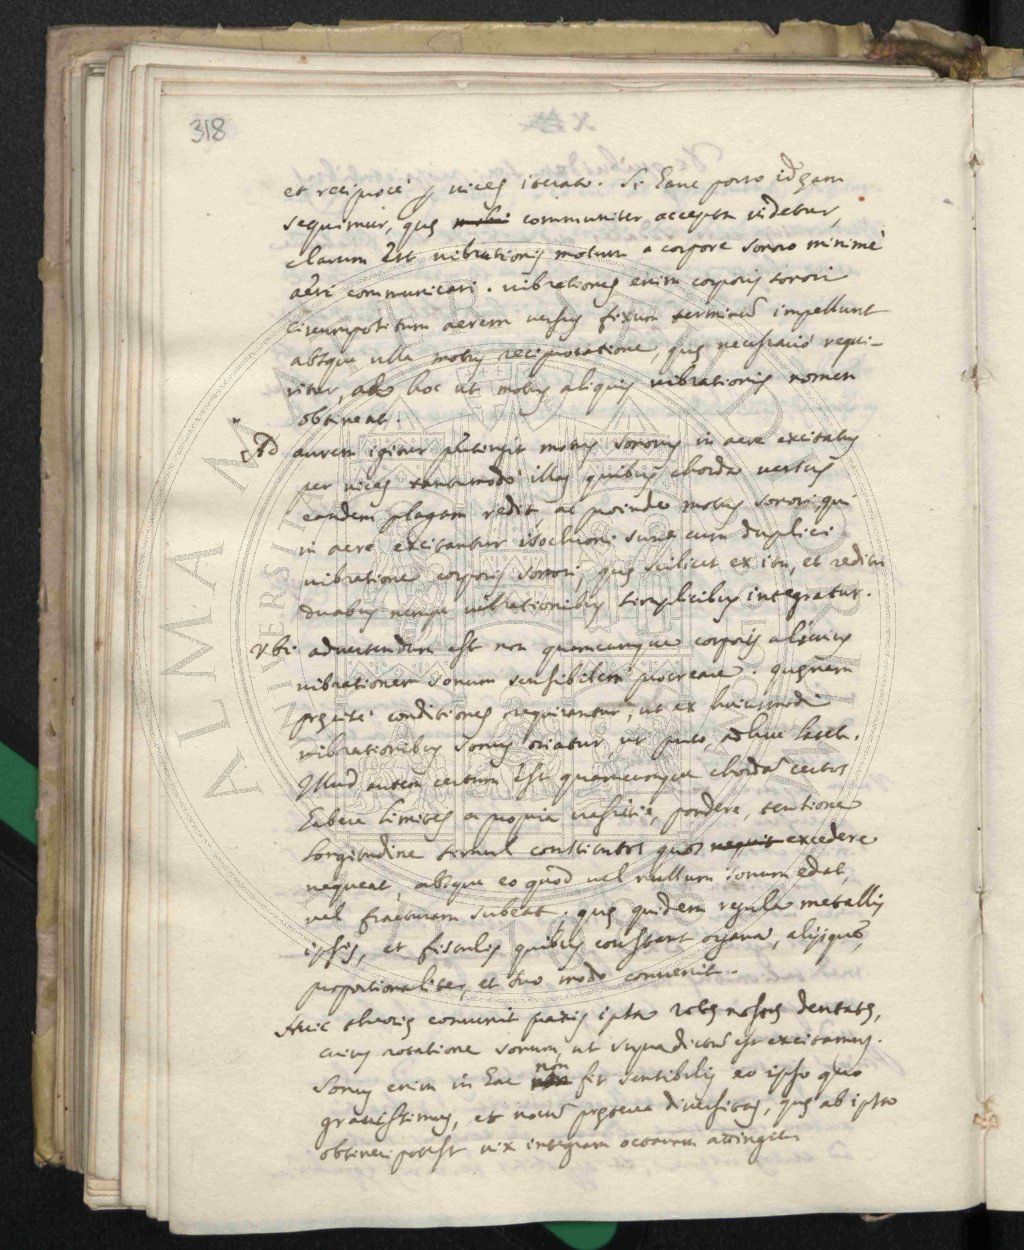 318
et reciproce p. vices iterato. Si hanc porro idęam
sequimur, quę communiter accepta videtur,
clarum est vibrationis motum a corpore sonoro minimè
aëri communicari. vibrationes enim corporis sonori
circumpositum aerem versus fixum terminũ impellunt
absque ulla motus reciprocatione, quę necessario requi-
ritur, ad hoc ut motus aliquis vibrationis nomen
obtineat.
Ad aurem igitur pertingit motus sonorus in aere excitatus
per vices tantummodo illas quibus chorda versus
eandem plagam redit, ac proinde motus sonori, qui
in aere excitantur isochroni sunt cum duplici
vibratione corporis sonori, quę scilicet ex itu, et reditu
duabus nempe vibrationibus simplicibus integratur.
Ubi advertendum est non quamcunque corporis alicuius
vibrationem sonum sensibilem procreare. quęnam
pręcise conditiones requirantur, ut ex huiusmodi
vibrationibus sonus oriatur, ut puto, adhuc latet.
Illud autem certum est quamcunque chordã certos
habere limites a propria crassitie, pondere, tentione
longitudine simul constitutos quos nequit excedere
nequeat, absque eo quod vel nullum sonum edat,
vel fracturam subeat; quę quidem regula metallis
ipsis, et fistulis quibus constant organa, alijsque,
proportionaliter, et suo modo convenit.
Huic theorię convenit praxis ipsa rotę nostrę dentatę,
cuius rotatione sonum, ut supra dictũ est excitamus.
non
Sonus enim in hac fit sensibilis eo ipso quo
gravissimus, et notũ pręterea diversitas, quę ab ipso
obtineri potest vix integram octavam attingit.